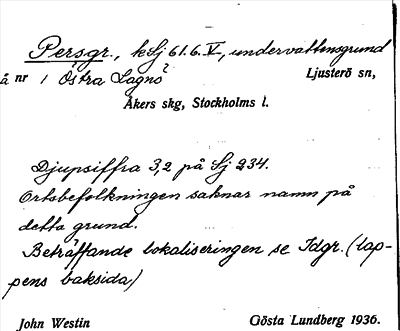 Persgr., kSj 61.6.V, undervattensgrund
å nr 1 Östra Lagnö² Ljusterö sn,
Åkers skg, Stockholms l.
Djupsiffra 3,2 på Sj 234.
Ortsbefolkningen saknar namn på
detta grund.
Beträffande lokaliseringen se Idgr. (lap-
pens baksida)
John Westin Gösta Lundberg 1936.